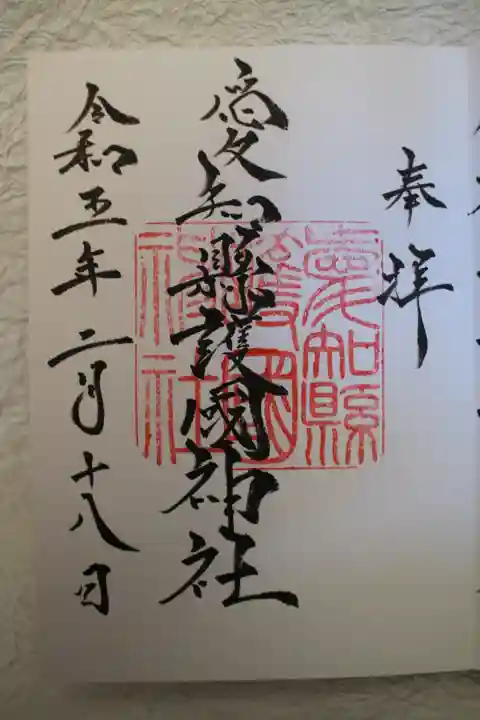 奉拝
愛知縣護國神社
愛知縣
護國
神社
令和五年二月十八日